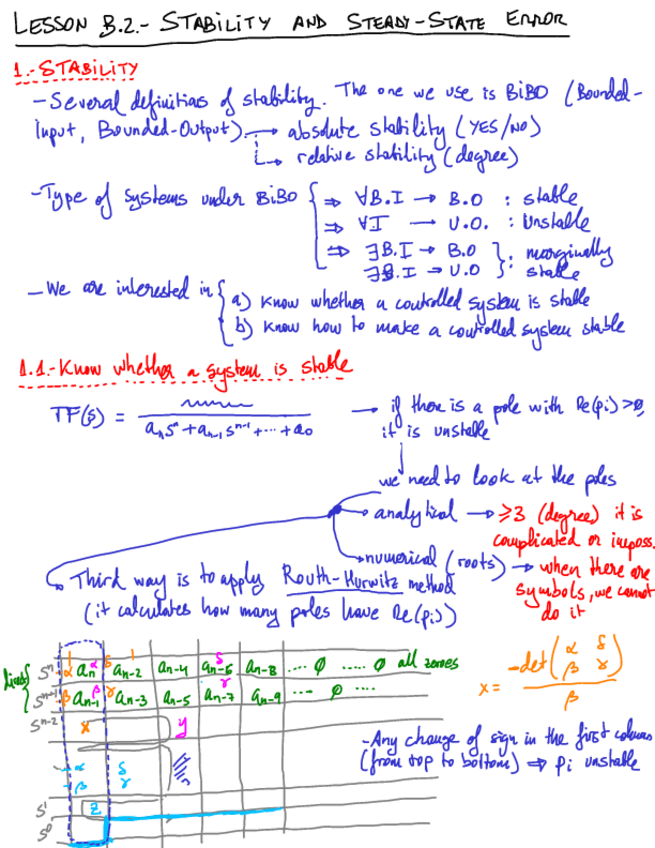 LESSON B.2.- STABILITY AND STEADY-STATE ERROR
1.- STABILITY
- Several definitions of stability. The one we use is BiBO (Bounded-
Input, Bounded-Output) → absolute stability (YES/NO)
→ relative stability (degree)
- Type of systems under BiBO { ⇒ ∀B.I → B.O : stable
⇒ ∀I → U.O. : Unstable
⇒ ∃B.I → B.O } : marginally
∃B.I → U.O } stable
- We are interested in { a) know whether a controlled system is stable
b) know how to make a controlled system stable
1.1.- Know whether a system is stable
TF(s) = / aₙsⁿ + aₙ₋₁ sⁿ⁻¹ + ... + a₀ → if there is a pole with Re(pi) > 0,
it is unstable
we need to look at the poles
→ analytical → ≥3 (degree) it is
complicated or imposs.
→ numerical (roots) → when there are
symbols, we cannot
do it
→ Third way is to apply Routh-Hurwitz method
(it calculates how many poles have Re(pi))
lines { sⁿ α aₙ α δ aₙ₋₂ aₙ₋₄ δ aₙ₋₆ aₙ₋₈ .... ∅ ..... ∅ all zeroes
sⁿ⁻¹ β aₙ₋₁ β γ aₙ₋₃ aₙ₋₅ γ aₙ₋₇ aₙ₋₉ ... ∅ ....
sⁿ⁻² x y
α δ
β γ
s¹ z
s⁰
x = -det(α δ
β γ) / β
- Any change of sign in the first column
(from top to bottom) ⇒ pi unstable